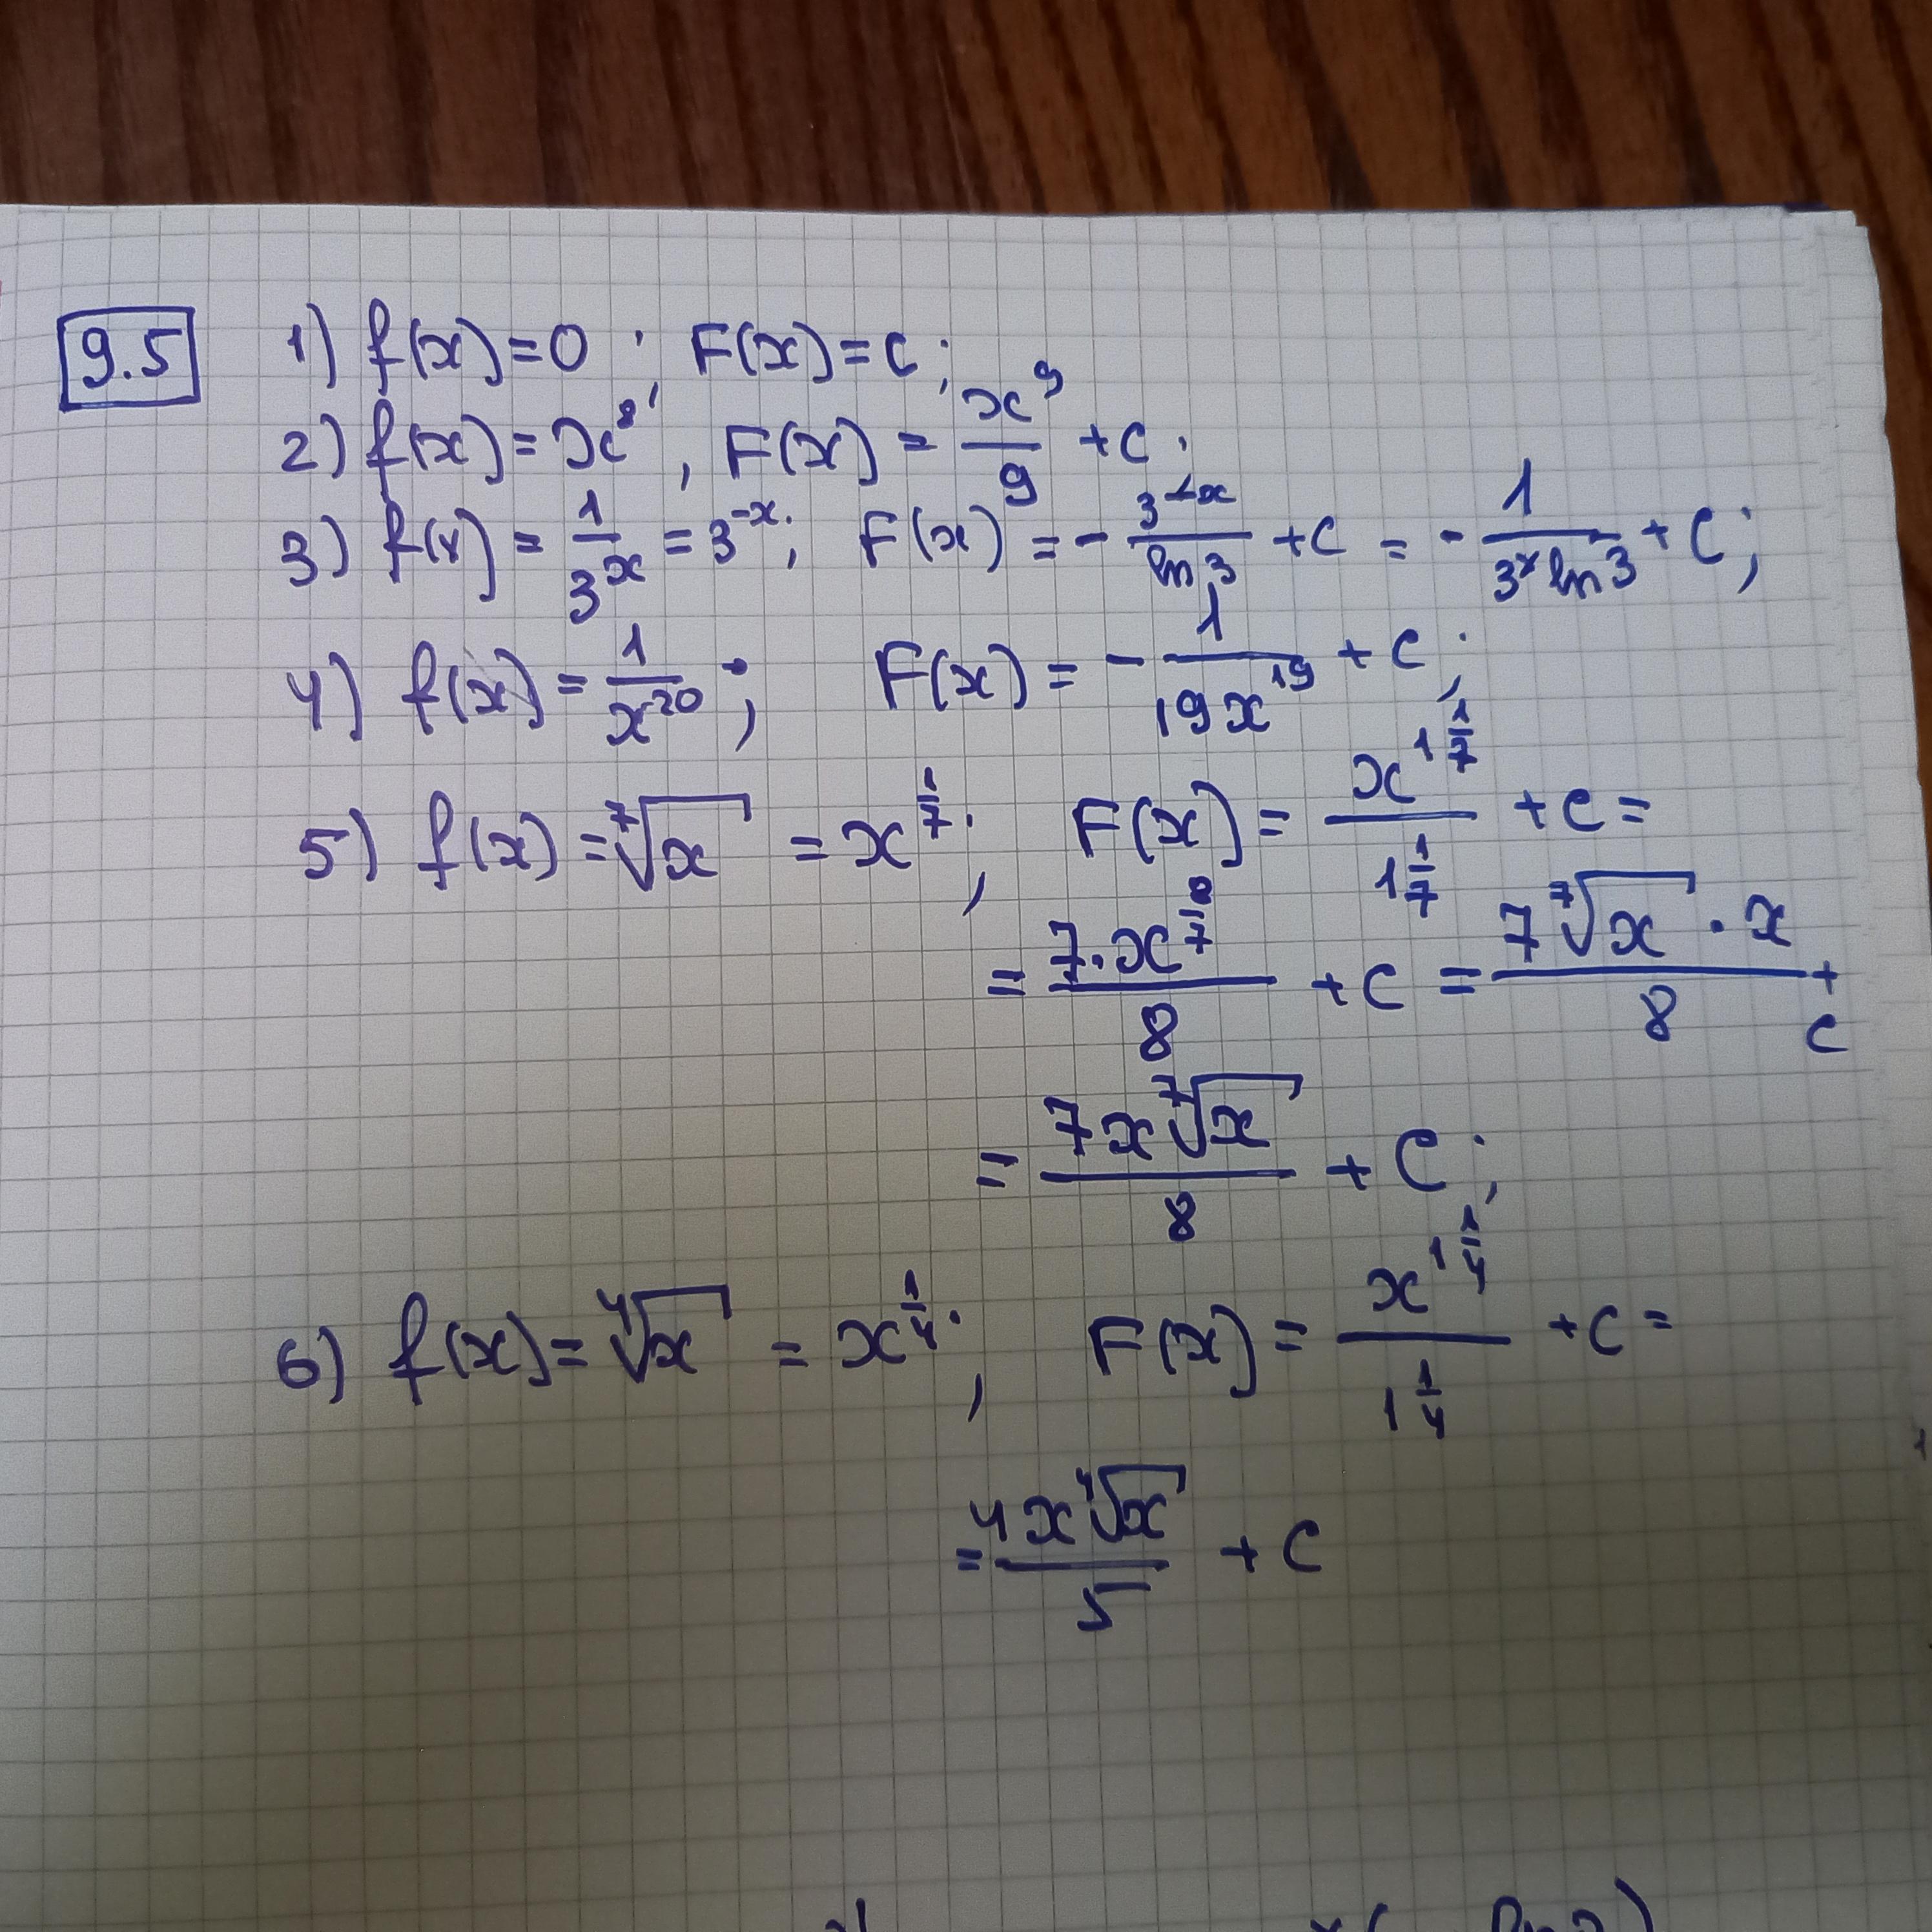 9.5 1) f(x)=0; F(x)=C;
2) f(x)=x⁸; F(x)=x⁹/9+C;
3) f(x)=1/3ˣ=3⁻ˣ; F(x)=-3⁻ˣ/ln3+C=-1/(3ˣln3)+C;
4) f(x)=1/x²⁰; F(x)=-1/(19x¹⁹)+C;
5) f(x)=⁷√x=x^(1/7); F(x)=x^(1 1/7)/(1 1/7)+C=
=7·x^(8/7)/8+C=7⁷√x·x/8+C
=7x⁷√x/8+C;
6) f(x)=⁴√x=x^(1/4); F(x)=x^(1 1/4)/(1 1/4)+C=
=4x⁴√x/5+C